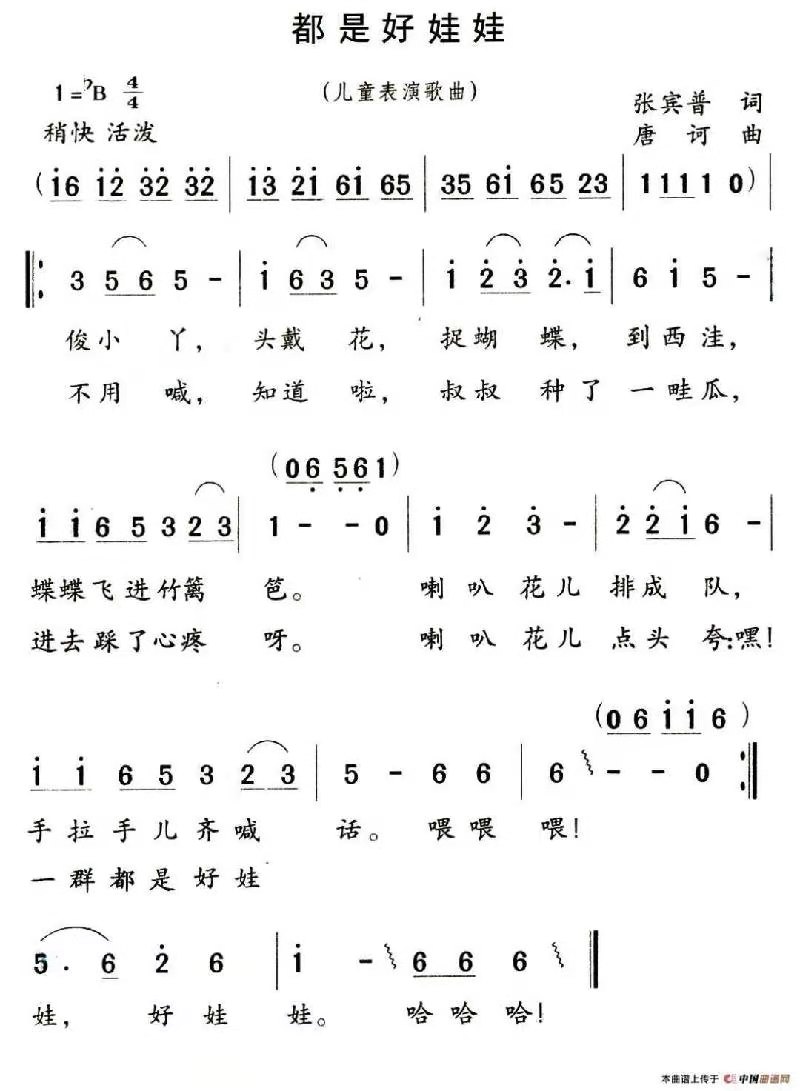 都是好娃娃
1=♭B 4/4
(儿童表演歌曲)
张宾普 词
稍快 活泼
唐诃 曲
(i6 i2 32 32 | i3 2i 6i 65 | 35 6i 65 23 | 1 11 1 0) |
3 5 6 5 - | i 6 3 5 - | i 2 3 2. i | 6 i 5 - |
俊小丫,头戴花,捉蝴蝶,到西洼,
不用喊,知道啦,叔叔种了一畦瓜,
(06 561)
i i 6 5 3 2 3 | 1 - - 0 | i 2 3 - | 2 2 i 6 - |
蝶蝶飞进竹篱笆。喇叭花儿排成队,
进去踩了心疼呀。喇叭花儿点头夸:嘿!
(0 6 i i 6)
i i 6 5 3 2 3 | 5 - 6 6 | 6 - - 0 :|
手拉手儿齐喊话。喂喂喂!
一群都是好娃
5. 6 2 6 | i - 6 6 6 ‖
娃,好娃娃。哈哈哈!
本曲谱上传于 中国曲谱网